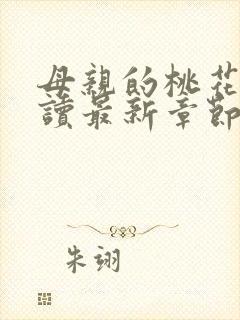 母親的桃花
讀最新章節
朱翊